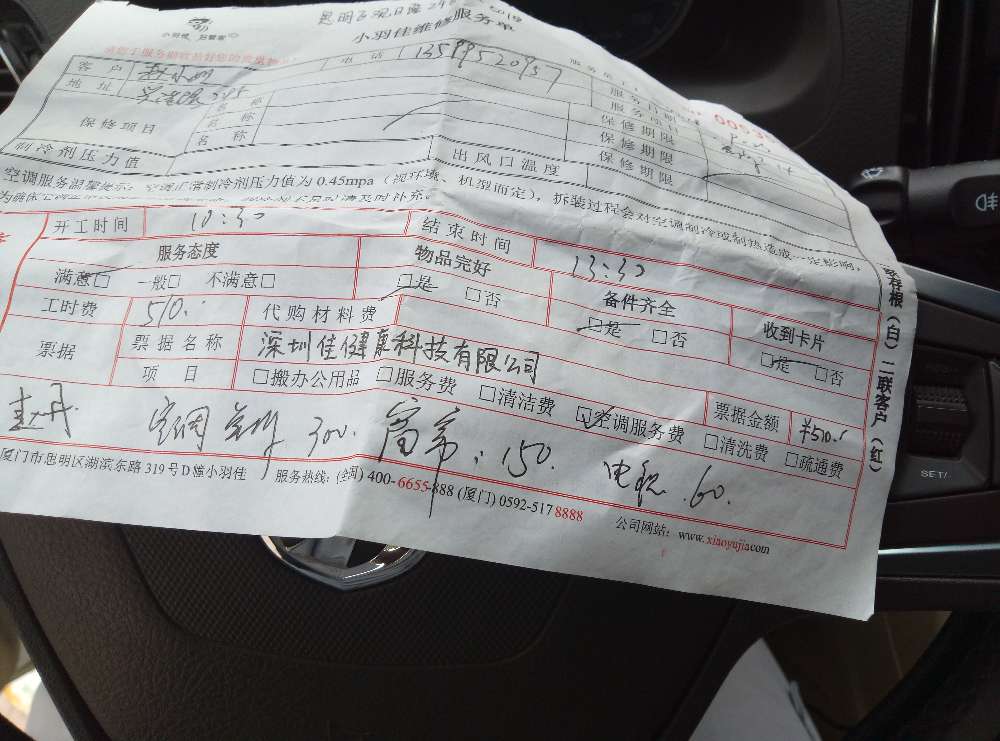 小羽佳维修服务单
客户
电话 13599520957
地址
保修项目
名称
名称
名称
服务项目
保修期限
保修期限
保修期限
制冷剂压力值
出风口温度
空调服务温馨提示：空调正常制冷剂压力值为0.45mpa（视环境、机型而定），拆装过程会对空调制冷或制热造成一定影响，
开工时间 10:30 结束时间 13:30
服务态度 物品完好 备件齐全 收到卡片
满意□ 一般□ 不满意□ □是 □否 □是 □否 □是 □否
工时费 510. 代购材料费
票据 票据名称 深圳佳健康科技有限公司 票据金额 ¥510.
项目 □搬办公用品 □服务费 □清洁费 □空调服务费 □清洗费 □疏通费
300. 150. 60.
厦门市思明区湖滨东路319号D幢小羽佳 服务热线：(全国) 400-6655-888 (厦门) 0592-5178888 公司网站：www.xiaoyujia.com
存根（白）二联客户（红）
SET/